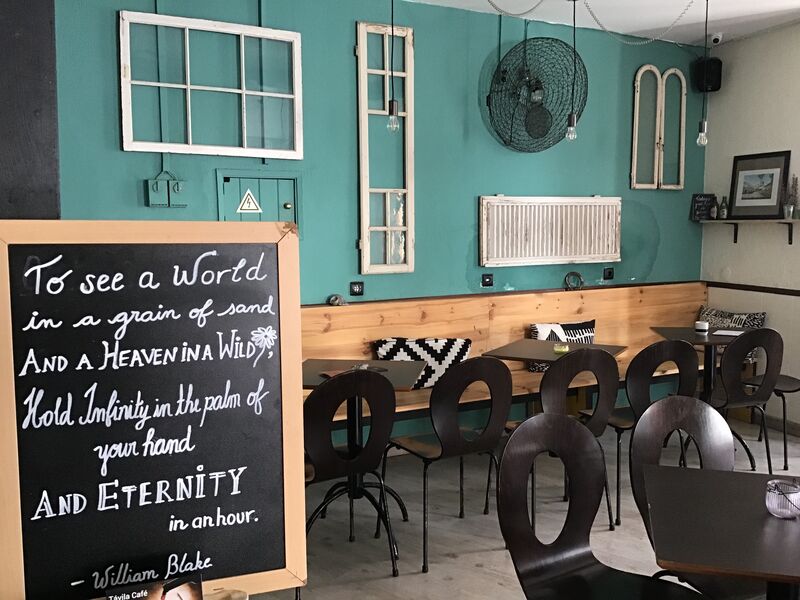 To see a World
in a grain of sand
AND A HEAVEN IN A WILD ,
Hold Infinity in the palm of
your hand
AND ETERNITY
in an hour.
- William Blake
Távila Café